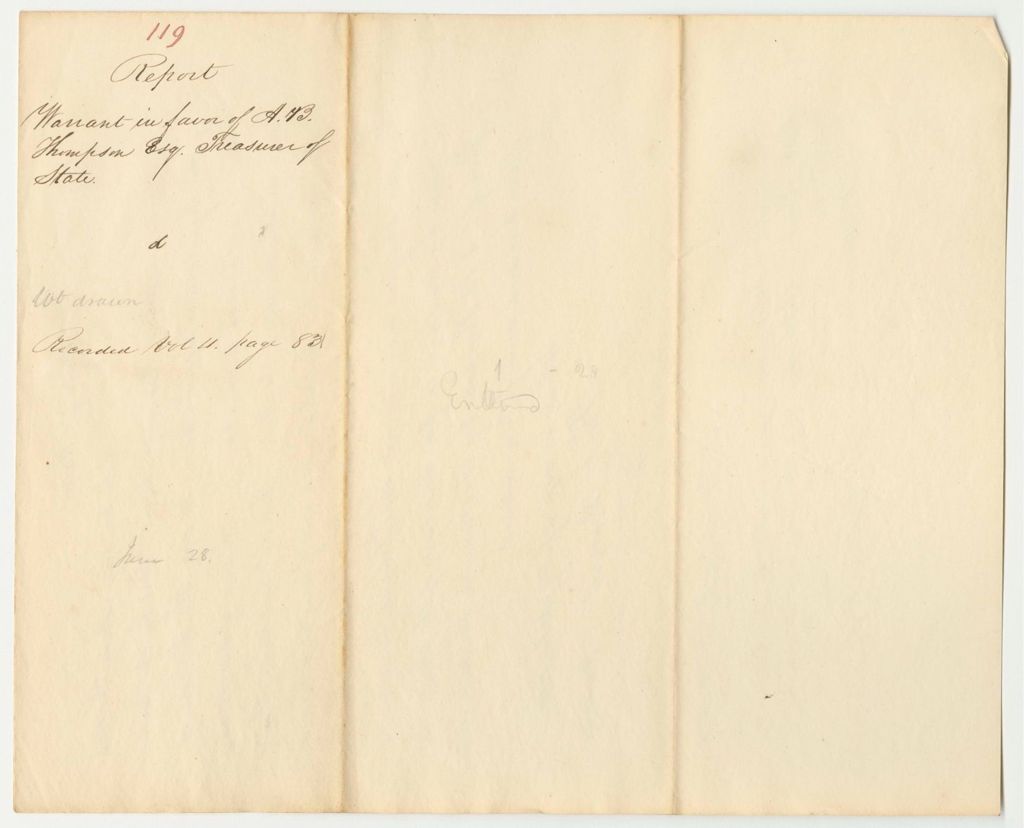 119
Report
Warrant in favor of A. B.
Thompson Esq. Treasurer of
State.
d
Wt drawn
Recorded Vol 4. page 83
1 - 28
June 28.